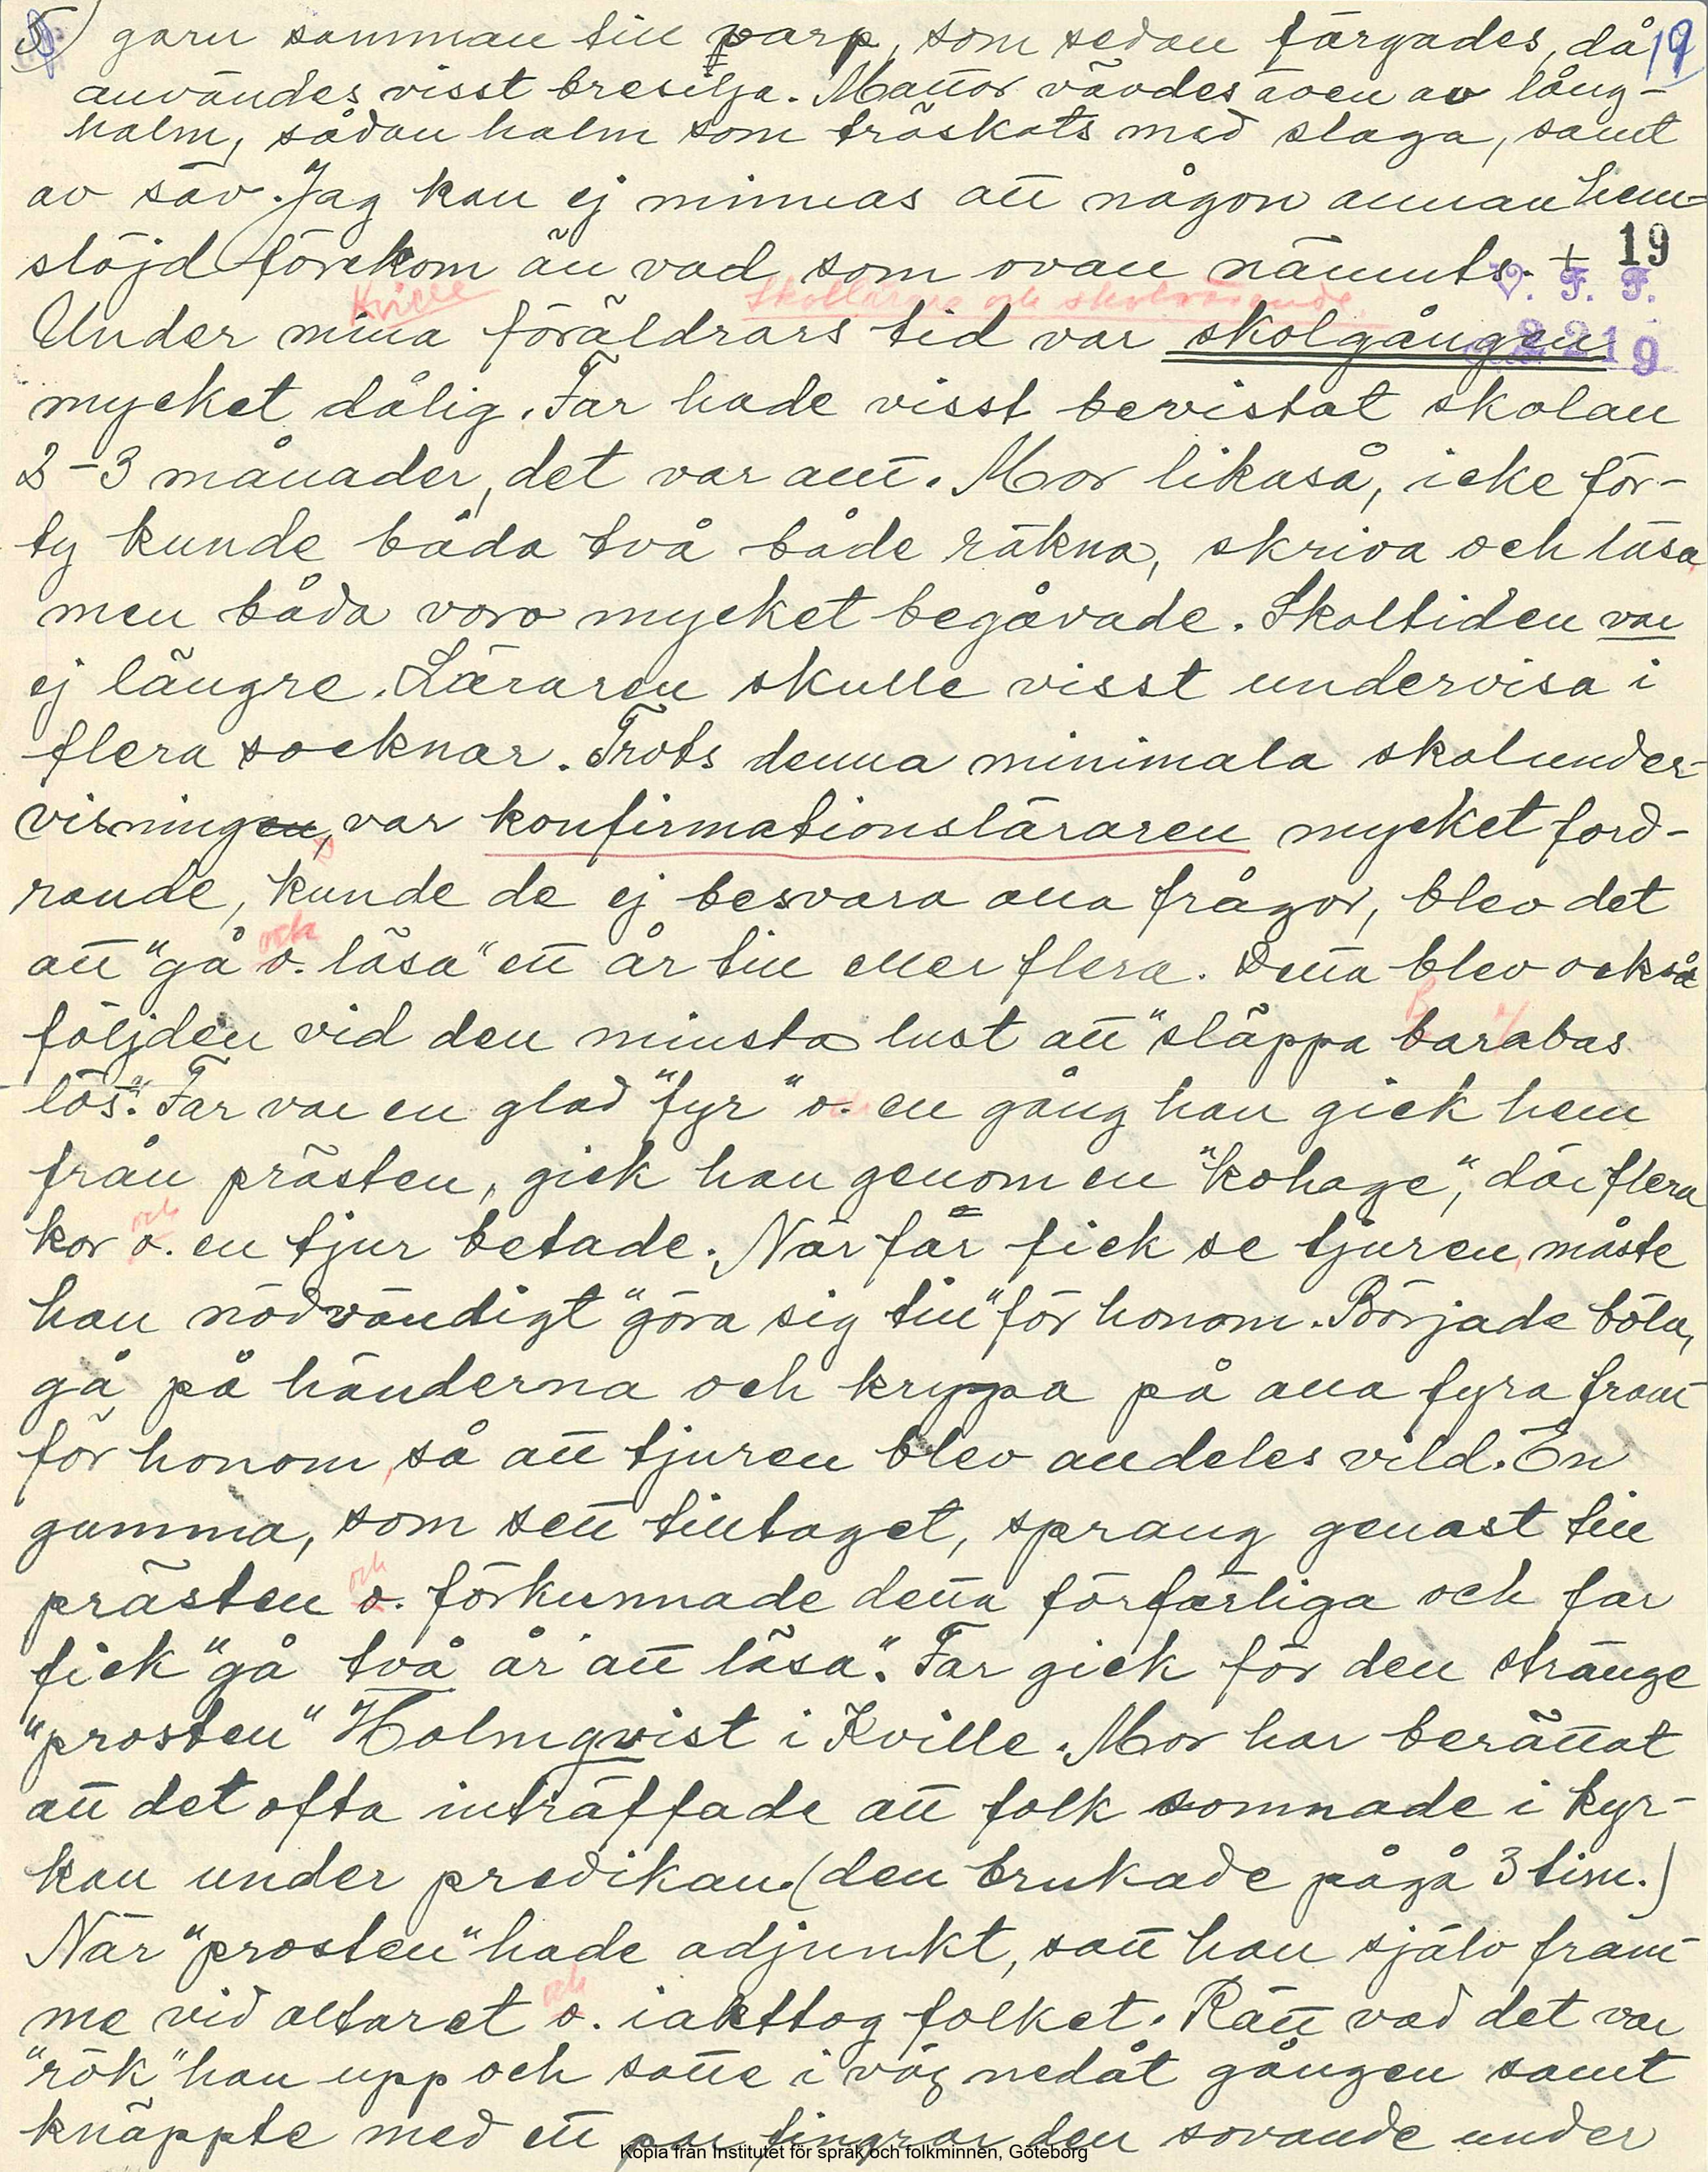 5) garn samman till varp, som sedan färgades, då 19
användes visst bresilja. Mattor vävdes även av lång-
halm, sådan halm som tröskats med slaga, samt
av säv. Jag kan ej minnas att någon annan hem-
slöjd förekom än vad som ovan nämnts. + 19
V. F. F.
Kville Skollärare och skolväsende.
Under mina föräldrars tid var skolgången 2219
mycket dålig. Far hade visst bevistat skolan
2-3 månader, det var allt. Mor likaså, icke för-
ty kunde båda två både räkna, skriva och läsa,
men båda voro mycket begåvade. Skoltiden var
ej längre. Läraren skulle visst undervisa i
flera socknar. Trots denna minimala skolunder-
visningen, var konfirmationsläraren mycket ford-
rande, kunde de ej besvara alla frågor, blev det
att "gå o. läsa" ett år till eller flera. Detta blev också
följden vid den minsta lust att "släppa barabas
lös". Far var en glad "fyr" o. en gång han gick hem
från prästen, gick han genom en "kohage", där flera
kor o. en tjur betade. När far fick se tjuren, måste
han nödvändigt "göra sig till" för honom. Började böla,
gå på händerna och krypa på alla fyra fram-
för honom, så att tjuren blev alldeles vild. En
gumma, som sett tilltaget, sprang genast till
prästen o. förkunnade detta förfärliga och far
fick "gå två år att läsa". Far gick för den stränge
"prosten" Holmqvist i Kville. Mor har berättat
att det ofta inträffade att folk somnade i kyr-
kan under predikan. (den brukade pågå 3 tim.)
När "prosten" hade adjunkt, satt han själv fram-
me vid altaret o. iakttog folket. Rätt vad det var
"rök" han upp och satte i väg nedåt gången samt
knäppte med ett par fingrar den sovande under
Kopia från Institutet för språk och folkminnen, Göteborg